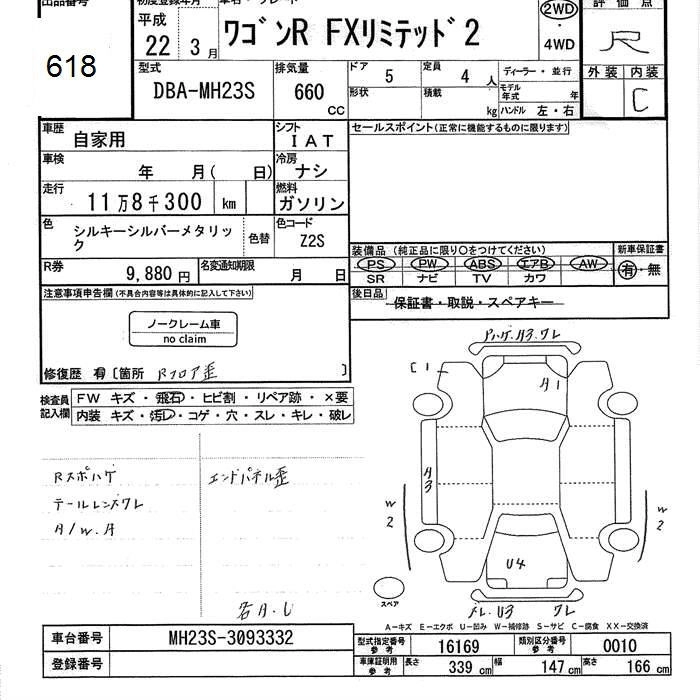 出品番号
618
初度登録年月
平成
22年 3月
車名・グレード
ワゴンR FXリミテッド2
2WD
・
4WD
評価点
R
外装 内装
C
型式
DBA-MH23S
排気量
660
CC
ドア 5
形状
定員 4 人
積載 kg
ディーラー・並行
モデル年式 年
ハンドル 左・右
車歴
自家用
シフト
IAT
セールスポイント(正常に機能するものに限ります)
車検
年 月( 日)
冷房
ナシ
走行
11万8千300 km
燃料
ガソリン
色
シルキーシルバーメタリック
色替
色コード
Z2S
R券
9,880 円
名変通知期限
月 日
装備品 (純正品に限り○をつけてください)
PS PW ABS エアB AW
SR ナビ TV カワ
新車保証書
有・無
後日品
保証書・取説・スペアキー
注意事項申告欄(不具合内容等は具体的に記入して下さい)
ノークレーム車
no claim
修復歴 有 [箇所 Rフロア歪 ]
検査員
記入欄
FW キズ・飛石・ヒビ割・リペア跡・×要
内装 キズ・汚レ・コゲ・穴・スレ・キレ・破レ
Rスポハゲ
テールレンズワレ
A/W.A
エンドパネル歪
ハゲ.A3.ワレ
C1
A1
A3
W2
W2
U4
スペア
U3 ワレ
A-キズ E-エクボ U-凹み W-補修跡 S-サビ C-腐食 XX-交換済
車台番号
MH23S-3093332
登録番号
型式指定番号
参考
16169
類別区分番号
参考
0010
車庫証明用
参考
長さ 339 cm
幅 147 cm
高さ 166 cm